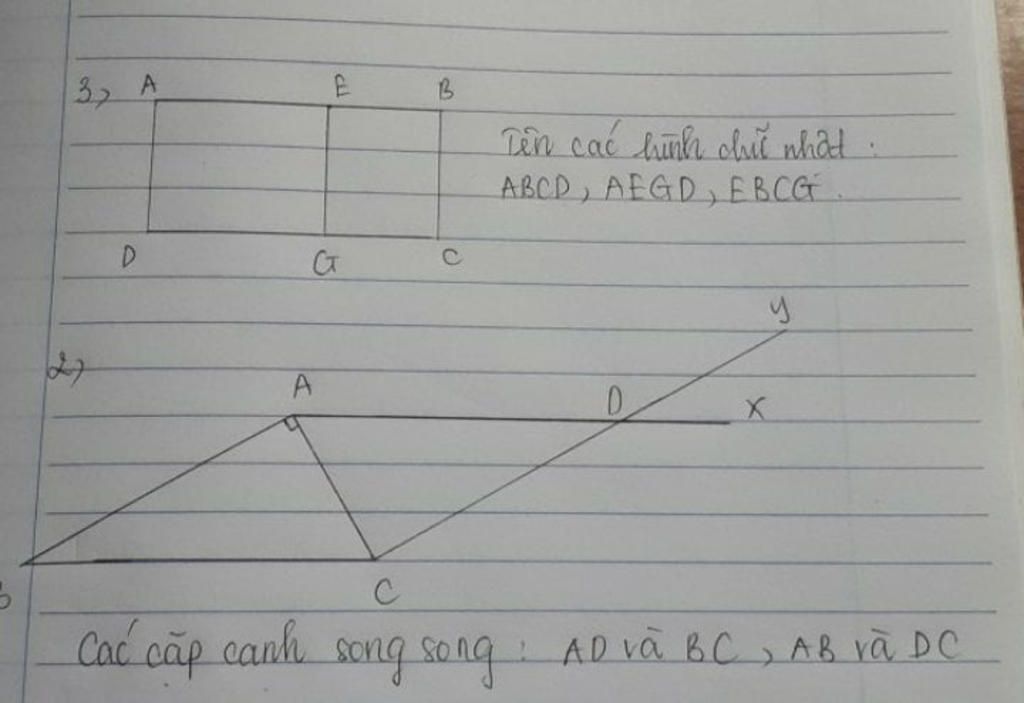 3) A E B
Tên các hình chữ nhật :
ABCD, AEGD, EBCG.
D G C
y
2)
A D x
B C
Các cặp cạnh song song : AD và BC, AB và DC